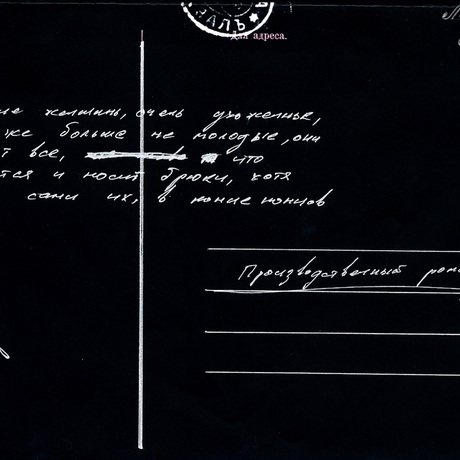 ЗАЛЪ
Для адреса.
ие женщины, очень ухоженные,
же больше не молодые, они
т все, что
тся и носит брюки, хотя
сами их, в конце концов
Производственный ром